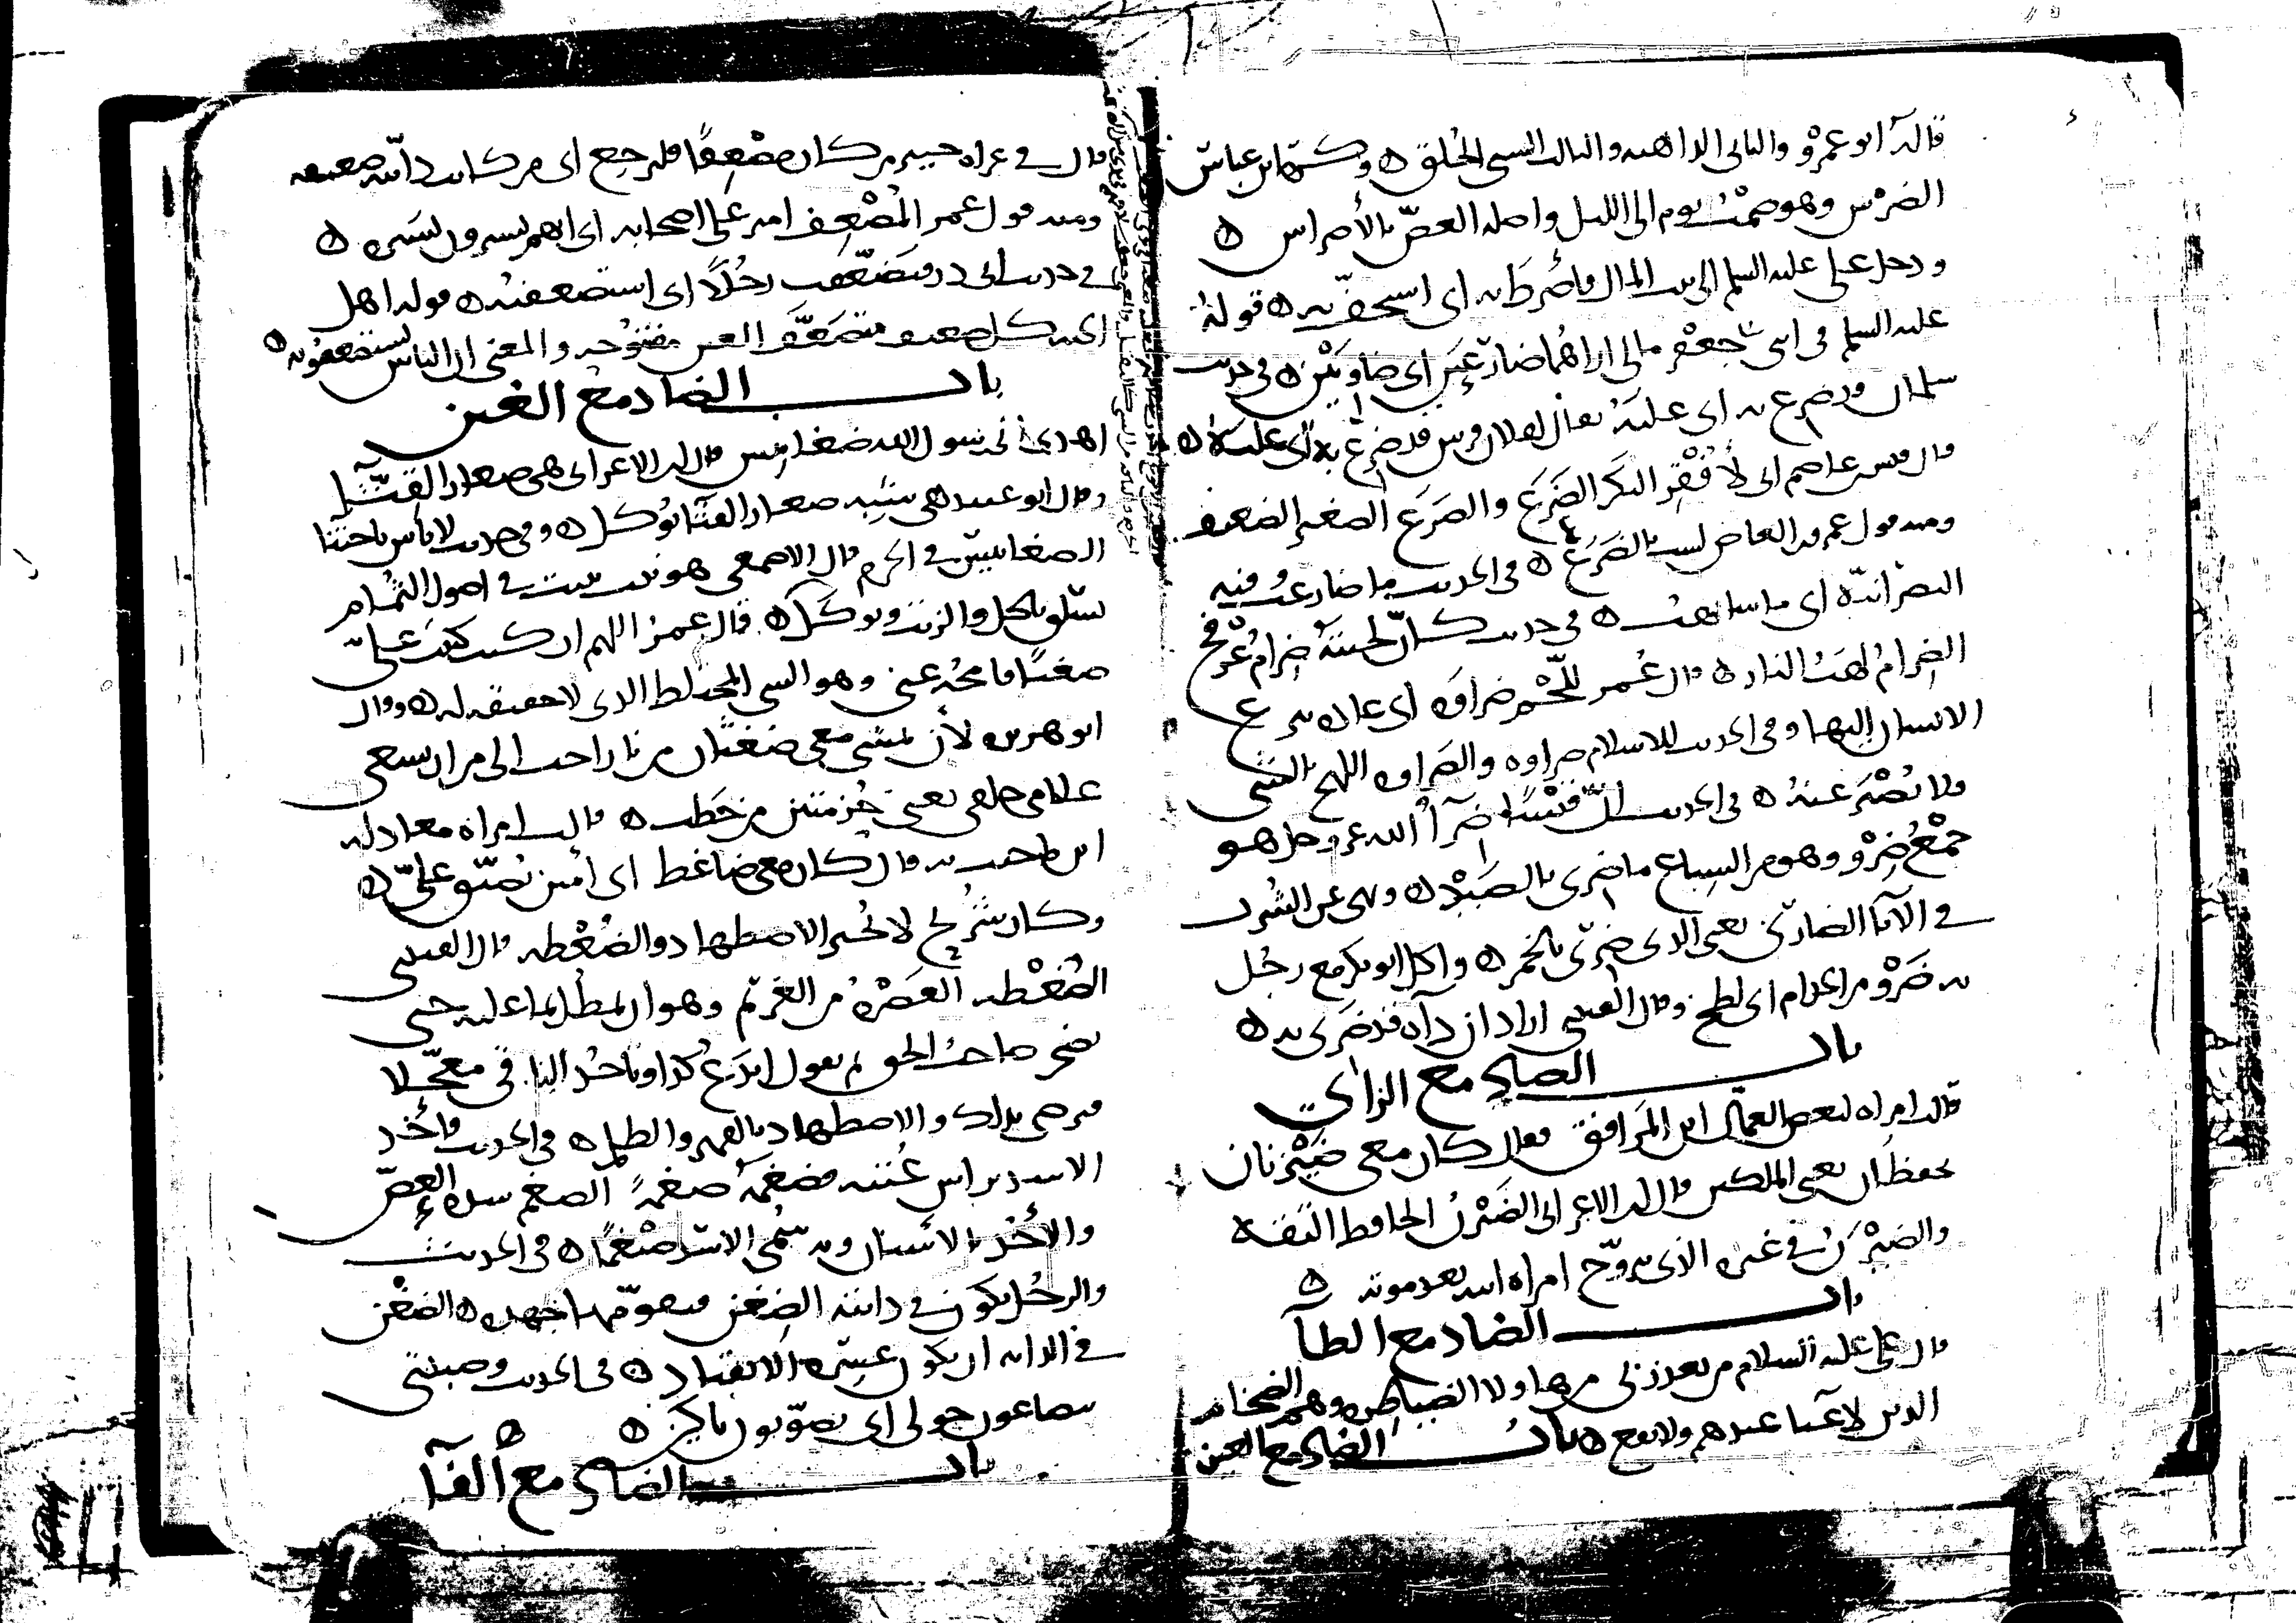 قاله ابو عمرو والثاني الداهيه والثالث السيئ الخلق ه وكره ابن عباس
الضرس وهو صمت يوم الى الليل واصله العض بالأضراس ه
ودخل علي عليه السلم الى بيت المال فأضرط به اى استخف به ه قوله
عليه السلم في ابني جعفر مالي اراهما ضارعين اى ضاويين ه في حديث
سلمان قد ضرع به اى غلبه يقال لفلان فرس قد ضرع به اى غلبه ه
قال قيس بن عاصم انى لأفقر البكر الضرع والضرع الصغير الضعيف
ومنه قول عمرو بن العاص لست بالضرع ه في الحديث ما ضارعت فيه
النصرانية اى ما شابهت ه في حديث كأن لحيته ضرام عرفج
الضرام لهب النار ه قال عمر للحم ضراوة اى عادة ينزع
الانسان إليها وفي الحديث للاسلام ضراوه والضراوه اللهج بالشي
ولا يصبر عنه ه في الحديث ان قيسا ضرآء الله عز وجل هو
جمع ضرو وهو من السباع ما ضرى بالصيد ه ونهى عن الشرب
في الآناء الضاري يعني الذى ضري بالخمر ه واكل ابو بكر مع رجل
به ضرو من الجذام اى لطخ وقال القتيبي اراد ان دآه قد ضرى به ه
باب الضاد مع الزاي
قالت امراه لبعض العمال اين المرافق فقال كان معي ضيزنان
يحفظان يعني الملكين قال ابن الاعرابي الضيزن الحافظ الثقة
والضيزن في غيره الذى يتزوج امراه ابيه بعد موته ه
باب الضاد مع الطآ
قال علي عليه السلام من يعذرني من هاولا الضياطره وهم الضخام
الذين لا غنآ عندهم ولا نفع ه باب الضاد مع العين
قال في غزاه خيبر من كان مضعفا فليرجع اى من كانت دابته ضعيفه
ومنه قول عمر المضعف امير على اصحابه اى انهم يسيرون بسيره ه
في حديث ابى ذر فتضعفت رجلا اى استضعفته ه قوله اهل
الجنه كل ضعيف متضعف العين مفتوحه والمعنى ان الناس يستضعفونه ه
باب الضاد مع الغين
اهدى الى رسول الله ضغابيس قال ابن الاعرابى هى صغار القثآ
وقال ابو عبيد هى شبه صغار القثآ يؤكل ه وفي حديث لا باس باجتنا
الضغابيس في الحرم قال الاصمعي هو نبت ينبت في اصول الثمام
يسلق بالخل والزيت ويوكل ه قال عمر اللهم ان كتبت علي
ضغثا فامحه عني وهو الشي المختلط الذى لا حقيقه له ه وقال
ابو هريره لأن يمشى معى ضغثان من نار احب الى من ان يسعى
غلامى خلفى يعني حزمتين من حطب ه قالت امراه معاذ له
اين ما جئت به قال كان معى ضاغط اى امين يضيق على ه
وكان شريح لا يجيز الاضطهاد والضغطه قال القتيبي
الضغطه العصره من الغريم وهو ان يمطل بما عليه حتى
يضجر صاحب الحق ثم يقول اتدع كذا وتاخذ الباقى معجلا
فيرضى بذلك والاضطهاد بالقهر والظلم ه في الحديث فأخذ
الاسد براس عتبه فضغمه ضغمة الضغم شده العض
والأخذ بالأسنان وبه سمى الاسد ضيغما ه في الحديث
والرجل يكون في دابته الضغن فيقومها جهده ه الضغن
في الدابه ان يكون عسير الانقياد ه في الحديث وصبيتى
يتضاغون حولى اى يصوتون باكين ه
باب الضاد مع الفآ